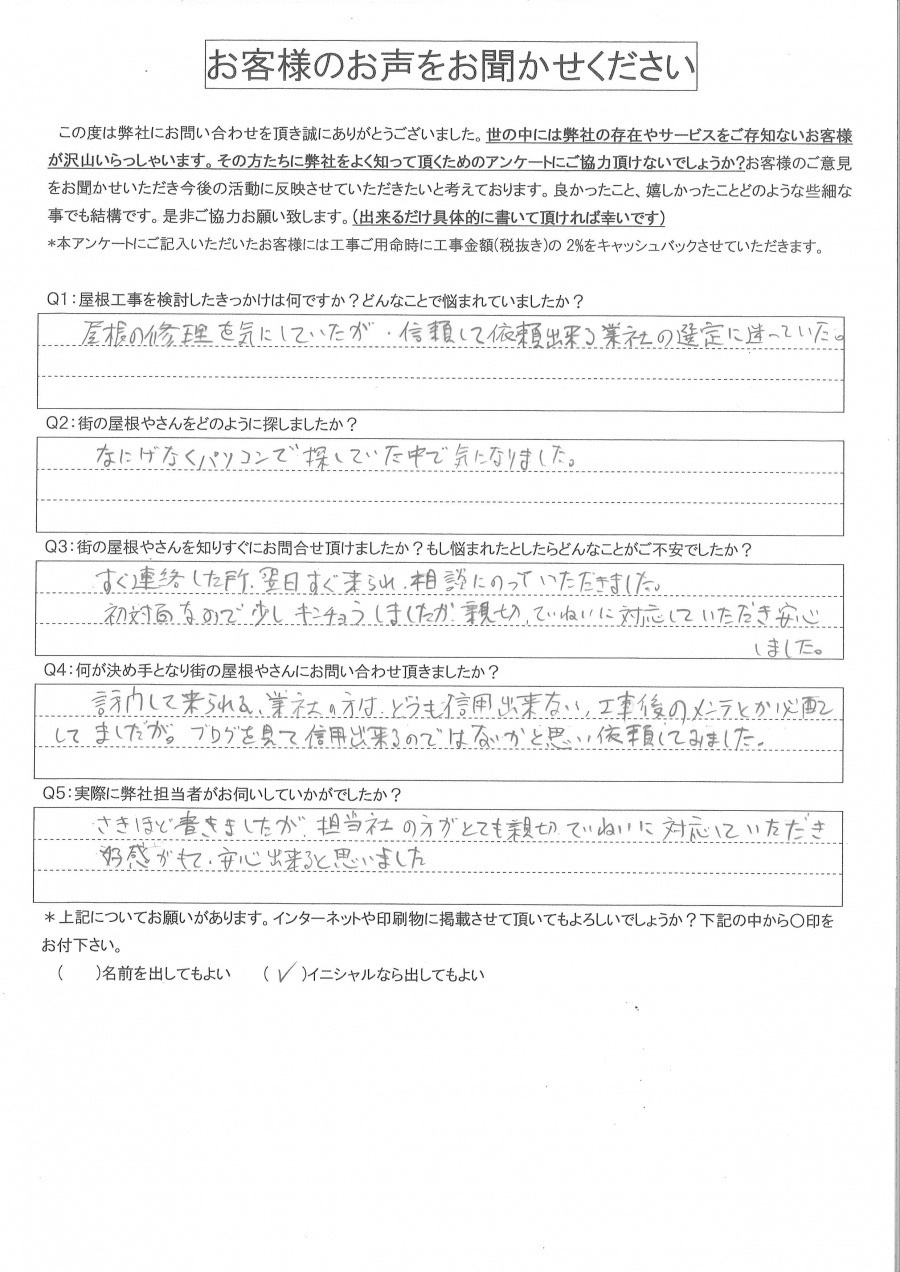 お客様のお声をお聞かせください
この度は弊社にお問い合わせを頂き誠にありがとうございました。世の中には弊社の存在やサービスをご存知ないお客様
が沢山いらっしゃいます。その方たちに弊社をよく知って頂くためのアンケートにご協力頂けないでしょうか?お客様のご意見
をお聞かせいただき今後の活動に反映させていただきたいと考えております。良かったこと、嬉しかったことどのような些細な
事でも結構です。是非ご協力お願い致します。(出来るだけ具体的に書いて頂ければ幸いです)
*本アンケートにご記入いただいたお客様には工事ご用命時に工事金額(税抜き)の 2%をキャッシュバックさせていただきます。
Q1:屋根工事を検討したきっかけは何ですか?どんなことで悩まれていましたか?
屋根の修理を気にしていたが、信頼して依頼出来る業社の選定に迷っていた。
Q2:街の屋根やさんをどのように探しましたか?
なにげなくパソコンで探していた中で気になりました。
Q3:街の屋根やさんを知りすぐにお問合せ頂けましたか?もし悩まれたとしたらどんなことがご不安でしたか?
すぐ連絡した所、翌日すぐ来られ、相談にのっていただきました。
初対面なので少しキンチョウしましたが、親切、ていねいに対応していただき安心
しました。
Q4:何が決め手となり街の屋根やさんにお問い合わせ頂きましたか?
訪内して来られる、業社の方は、どうも信用出来ない、工事後のメンテとか心配
してましたが。ブログを見て信用出来るのではないかと思い依頼してみました。
Q5:実際に弊社担当者がお伺いしていかがでしたか?
さきほど書きましたが、担当社の方がとても親切、ていねいに対応していただき
好感がもて、安心出来ると思いました
*上記についてお願いがあります。インターネットや印刷物に掲載させて頂いてもよろしいでしょうか?下記の中から〇印を
お付下さい。
(　　)名前を出してもよい　(✓)イニシャルなら出してもよい